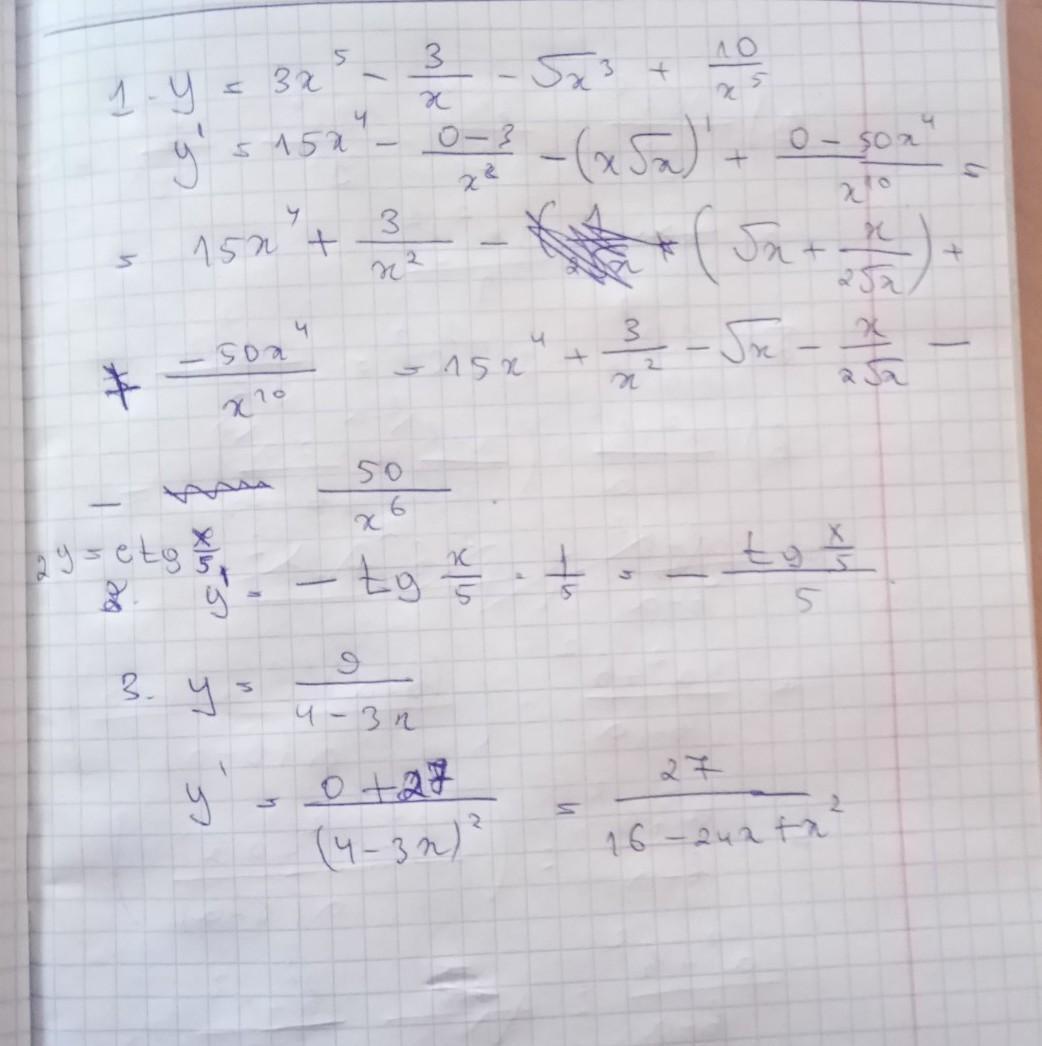 1. y = 3x^5 - 3/x - √x^3 + 10/x^5
y' = 15x^4 - (0-3)/x^2 - (x√x)' + (0 - 50x^4)/x^10 =
= 15x^4 + 3/x^2 - (√x + x/(2√x)) +
+ (-50x^4)/x^10 = 15x^4 + 3/x^2 - √x - x/(2√x) -
- 50/x^6.
2 y = ctg x/5
y' = - tg x/5 · 1/5 = - (tg x/5)/5.
3. y = 9/(4 - 3x)
y' = (0 + 27)/(4 - 3x)^2 = 27/(16 - 24x + x^2)